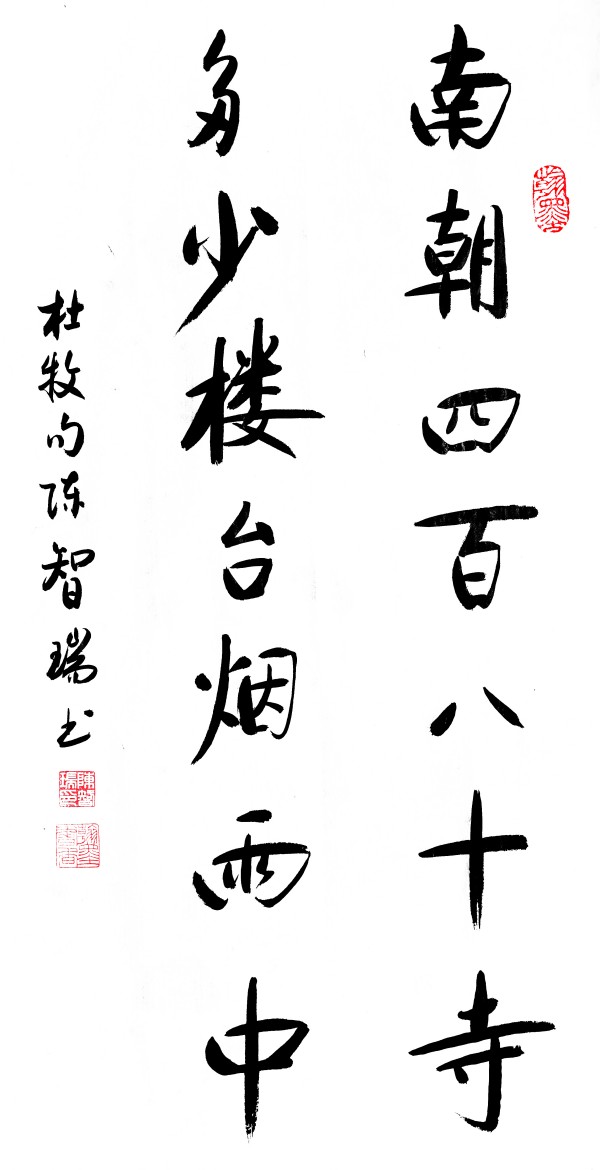 南朝四百八十寺
多少楼台烟雨中
杜牧句陈智瑞书